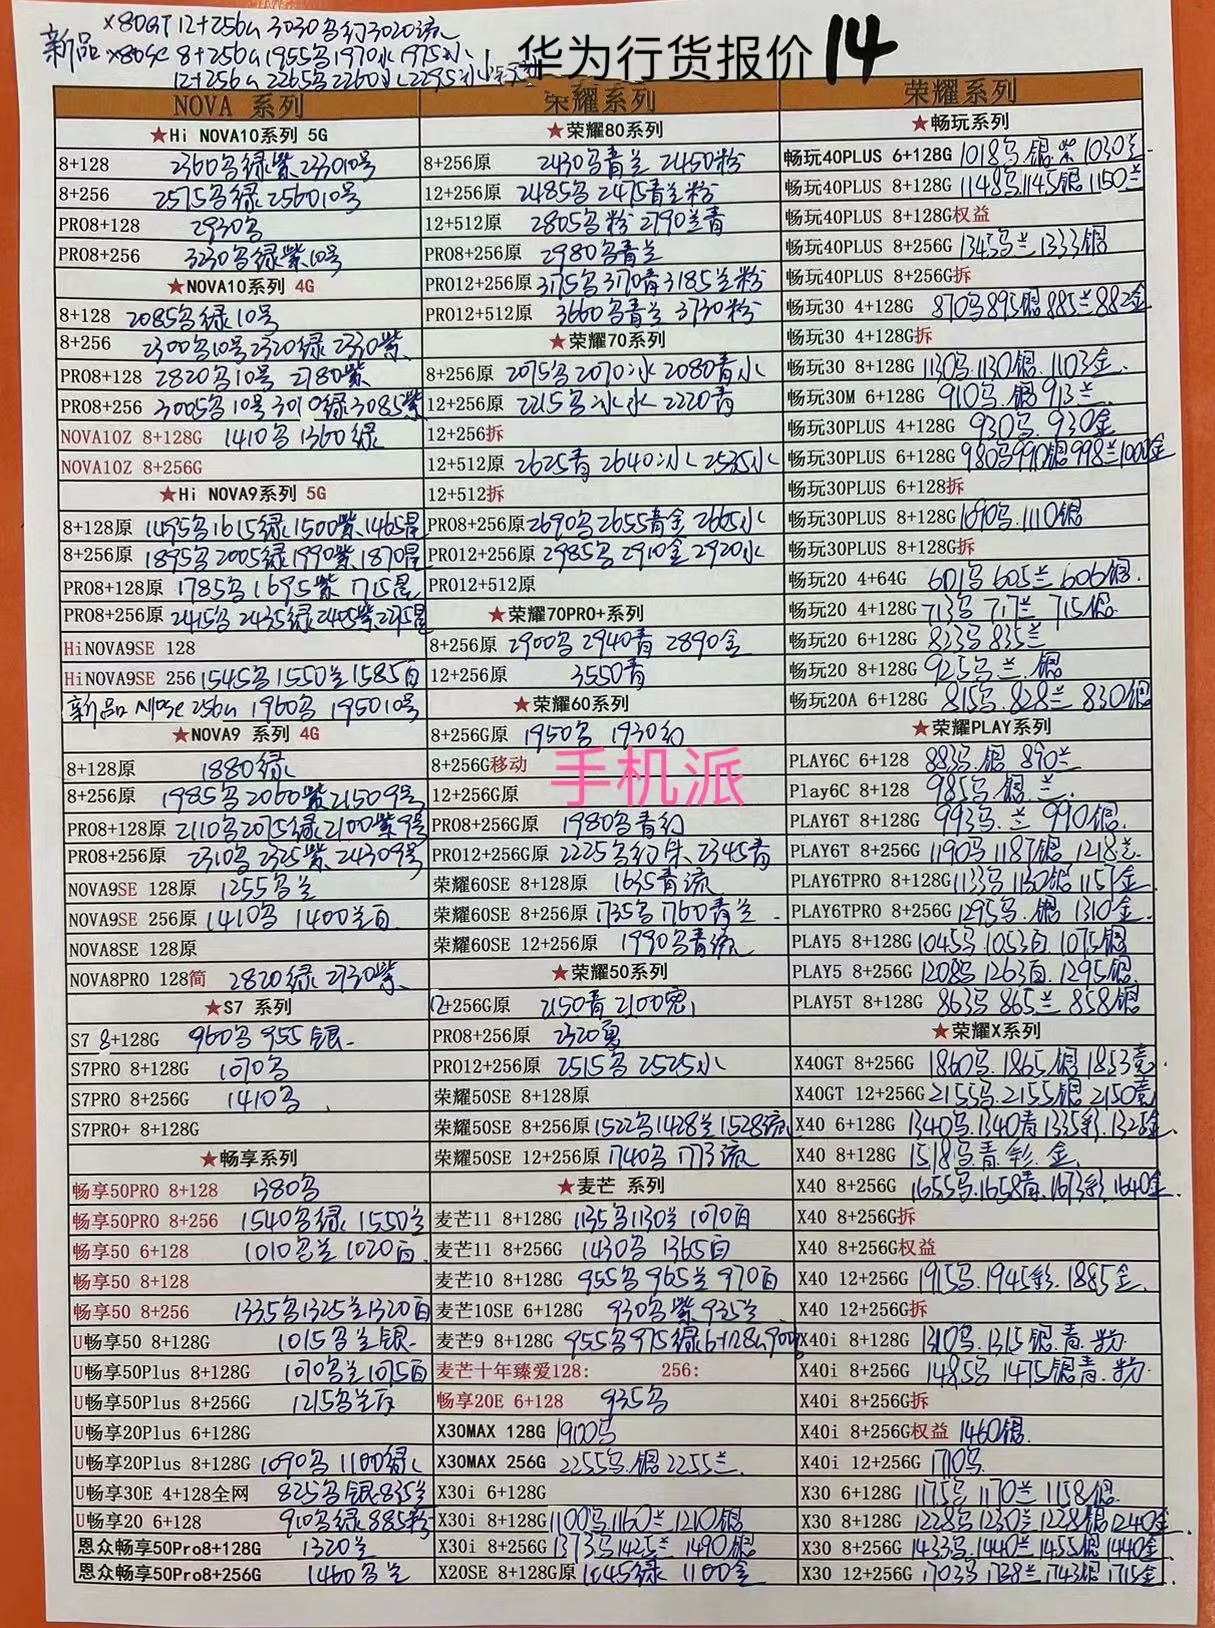 X80GT 12+256G 3030乌幻3020流
新品 X80SE 8+256G 1955乌1970水1975冰
12+256G 2265乌2260冰2295冰
华为行货报价 14
NOVA 系列
★Hi NOVA10系列 5G
8+128 2360乌绿紫233010号
8+256 2575乌绿256010号
PRO8+128 2930乌
PRO8+256 3230乌绿紫10号
★NOVA10系列 4G
8+128 2085乌绿10号
8+256 2300乌10号2320绿2330紫
PRO8+128 2820乌10号 2780紫
PRO8+256 3005乌10号3010绿3085紫
NOVA10Z 8+128G 1410乌1360绿
NOVA10Z 8+256G
★Hi NOVA9系列 5G
8+128原 1495乌1615绿1500紫1465星
8+256原 1895乌2005绿1990紫1870星
PRO8+128原 1785乌1695紫 1715星
PRO8+256原 2415乌2435绿2405紫
HiNOVA9SE 128
HiNOVA9SE 256 1545乌1550兰1585白
新品 256G 1960乌 195010号
★NOVA9 系列 4G
8+128原 1880绿
8+256原 1985乌2060紫21509号
PRO8+128原 2110乌2075绿2100紫9号
PRO8+256原 2310乌2325紫 24309号
NOVA9SE 128原 1255乌兰
NOVA9SE 256原 1410乌 1400兰白
NOVA8SE 128原
NOVA8PRO 128简 2820绿2730紫
★S7 系列
S7 8+128G 960乌 955银
S7PRO 8+128G 1070乌
S7PRO 8+256G 1410乌
S7PRO+ 8+128G
★畅享系列
畅享50PRO 8+128 1380乌
畅享50PRO 8+256 1540乌绿 1550兰
畅享50 6+128 1010乌兰1020白
畅享50 8+128
畅享50 8+256 1335乌1325兰1320白
U畅享50 8+128G 1015乌兰银
U畅享50Plus 8+128G 1070乌兰1075白
U畅享50Plus 8+256G 1215乌兰白
U畅享20Plus 6+128G
U畅享20Plus 8+128G 1090乌 1100绿
U畅享30E 4+128全网 825乌银835兰
U畅享20 6+128 910乌绿885粉
恩众畅享50Pro8+128G 1320兰
恩众畅享50Pro8+256G 1460乌兰
荣耀系列
★荣耀80系列
8+256原 2430乌青兰 2450粉
12+256原 2485乌2475青兰粉
12+512原 2805乌粉 2790兰青
PRO8+256原 2980乌青兰
PRO12+256原 3175乌3170青3185兰粉
PRO12+512原 3660乌青兰 3730粉
★荣耀70系列
8+256原 2075乌2070冰 2080青水
12+256原 2215乌冰水 2220青
12+256拆
12+512原 2625青2640冰2535水
12+512拆
PRO8+256原 2690乌2655青金2665水
PRO12+256原 2985乌2910金2920水
PRO12+512原
★荣耀70PRO+系列
8+256原 2900乌2940青2890金
12+256原 3550青
★荣耀60系列
8+256G原 1950乌 1930幻
8+256G移动
手机派
12+256G原
PRO8+256G原 1980乌青幻
PRO12+256G原 2225乌幻朱 2345青
荣耀60SE 8+128原 1635青流
荣耀60SE 8+256原 1735乌1760青兰
荣耀60SE 12+256原 1990乌青流
★荣耀50系列
12+256G原 2150青2100
PRO8+256原 2320夏
PRO12+256原 2515乌2525水
荣耀50SE 8+128原
荣耀50SE 8+256原 1522乌1428兰1528流
荣耀50SE 12+256原 1740乌1773流
★麦芒 系列
麦芒11 8+128G 1135乌1130兰1070白
麦芒11 8+256G 1430乌 1365白
麦芒10 8+128G 955乌965兰970白
麦芒10SE 6+128G 930乌紫935兰
麦芒9 8+128G 955乌975绿6+128G900乌
麦芒十年臻爱128: 256:
畅享20E 6+128 935乌
X30MAX 128G 1900乌
X30MAX 256G 2255乌.银2255兰.
X30i 6+128G
X30i 8+128G 1100乌1160兰1210银
X30i 8+256G 1373乌1425兰1490银
X20SE 8+128G原 1045绿 1100金
荣耀系列
★畅玩系列
畅玩40PLUS 6+128G 1018乌.银.紫1030兰
畅玩40PLUS 8+128G 1148乌1145银1150兰
畅玩40PLUS 8+128G权益
畅玩40PLUS 8+256G 1345乌兰.1333银
畅玩40PLUS 8+256G拆
畅玩30 4+128G 870乌895银885兰882金
畅玩30 4+128G拆
畅玩30 8+128G 1130乌1130银.1103金.
畅玩30M 6+128G 910乌.银913兰
畅玩30PLUS 4+128G 930乌.930金
畅玩30PLUS 6+128G 980乌990银998兰1000金
畅玩30PLUS 6+128拆
畅玩30PLUS 8+128G 1090乌.1110银
畅玩30PLUS 8+128G拆
畅玩20 4+64G 601乌605兰606银.
畅玩20 4+128G 713乌717兰 715银
畅玩20 6+128G 823乌835兰
畅玩20 8+128G 925乌兰.银
畅玩20A 6+128G 815乌.828兰830银
★荣耀PLAY系列
PLAY6C 6+128 883乌.银 890兰
Play6C 8+128 985乌.银.兰.
PLAY6T 8+128G 993乌.兰990银.
PLAY6T 8+256G 1190乌1187银1218兰.
PLAY6TPRO 8+128G 1133乌1130银1157金
PLAY6TPRO 8+256G 1295乌.银1310金.
PLAY5 8+128G 1045乌1053白1075银
PLAY5 8+256G 1208乌1263白.1295银
PLAY5T 8+128G 863乌865兰858银
★荣耀X系列
X40GT 8+256G 1860乌.1865银1853竞
X40GT 12+256G 2155乌.2155银2150竞
X40 6+128G 1340乌.1340青1335彩.1325金.
X40 8+128G 1518乌.青.彩.金.
X40 8+256G 1655乌.1658青.1673彩1640金.
X40 8+256G拆
X40 8+256G权益
X40 12+256G 1915乌.1945彩.1885金.
X40 12+256G拆
X40i 8+128G 1310乌.1315银.青.粉
X40i 8+256G 1485乌1475银青.粉
X40i 8+256G拆
X40i 8+256G权益 1460银.
X40i 12+256G 1710乌.
X30 6+128G 1175乌1170兰1158银
X30 8+128G 1228乌1230兰1228银1240金
X30 8+256G 1433乌.1440兰1455银1440金
X30 12+256G 1703乌1728兰1743银1715金